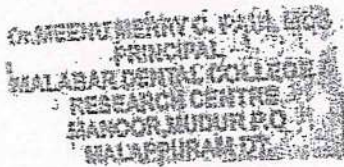 PRINCIPAL
MALABAR DENTAL COLLEGE
RESEARCH CENTRE
MANOOR, MUDUR.P.O
MALAPPURAM.DT.